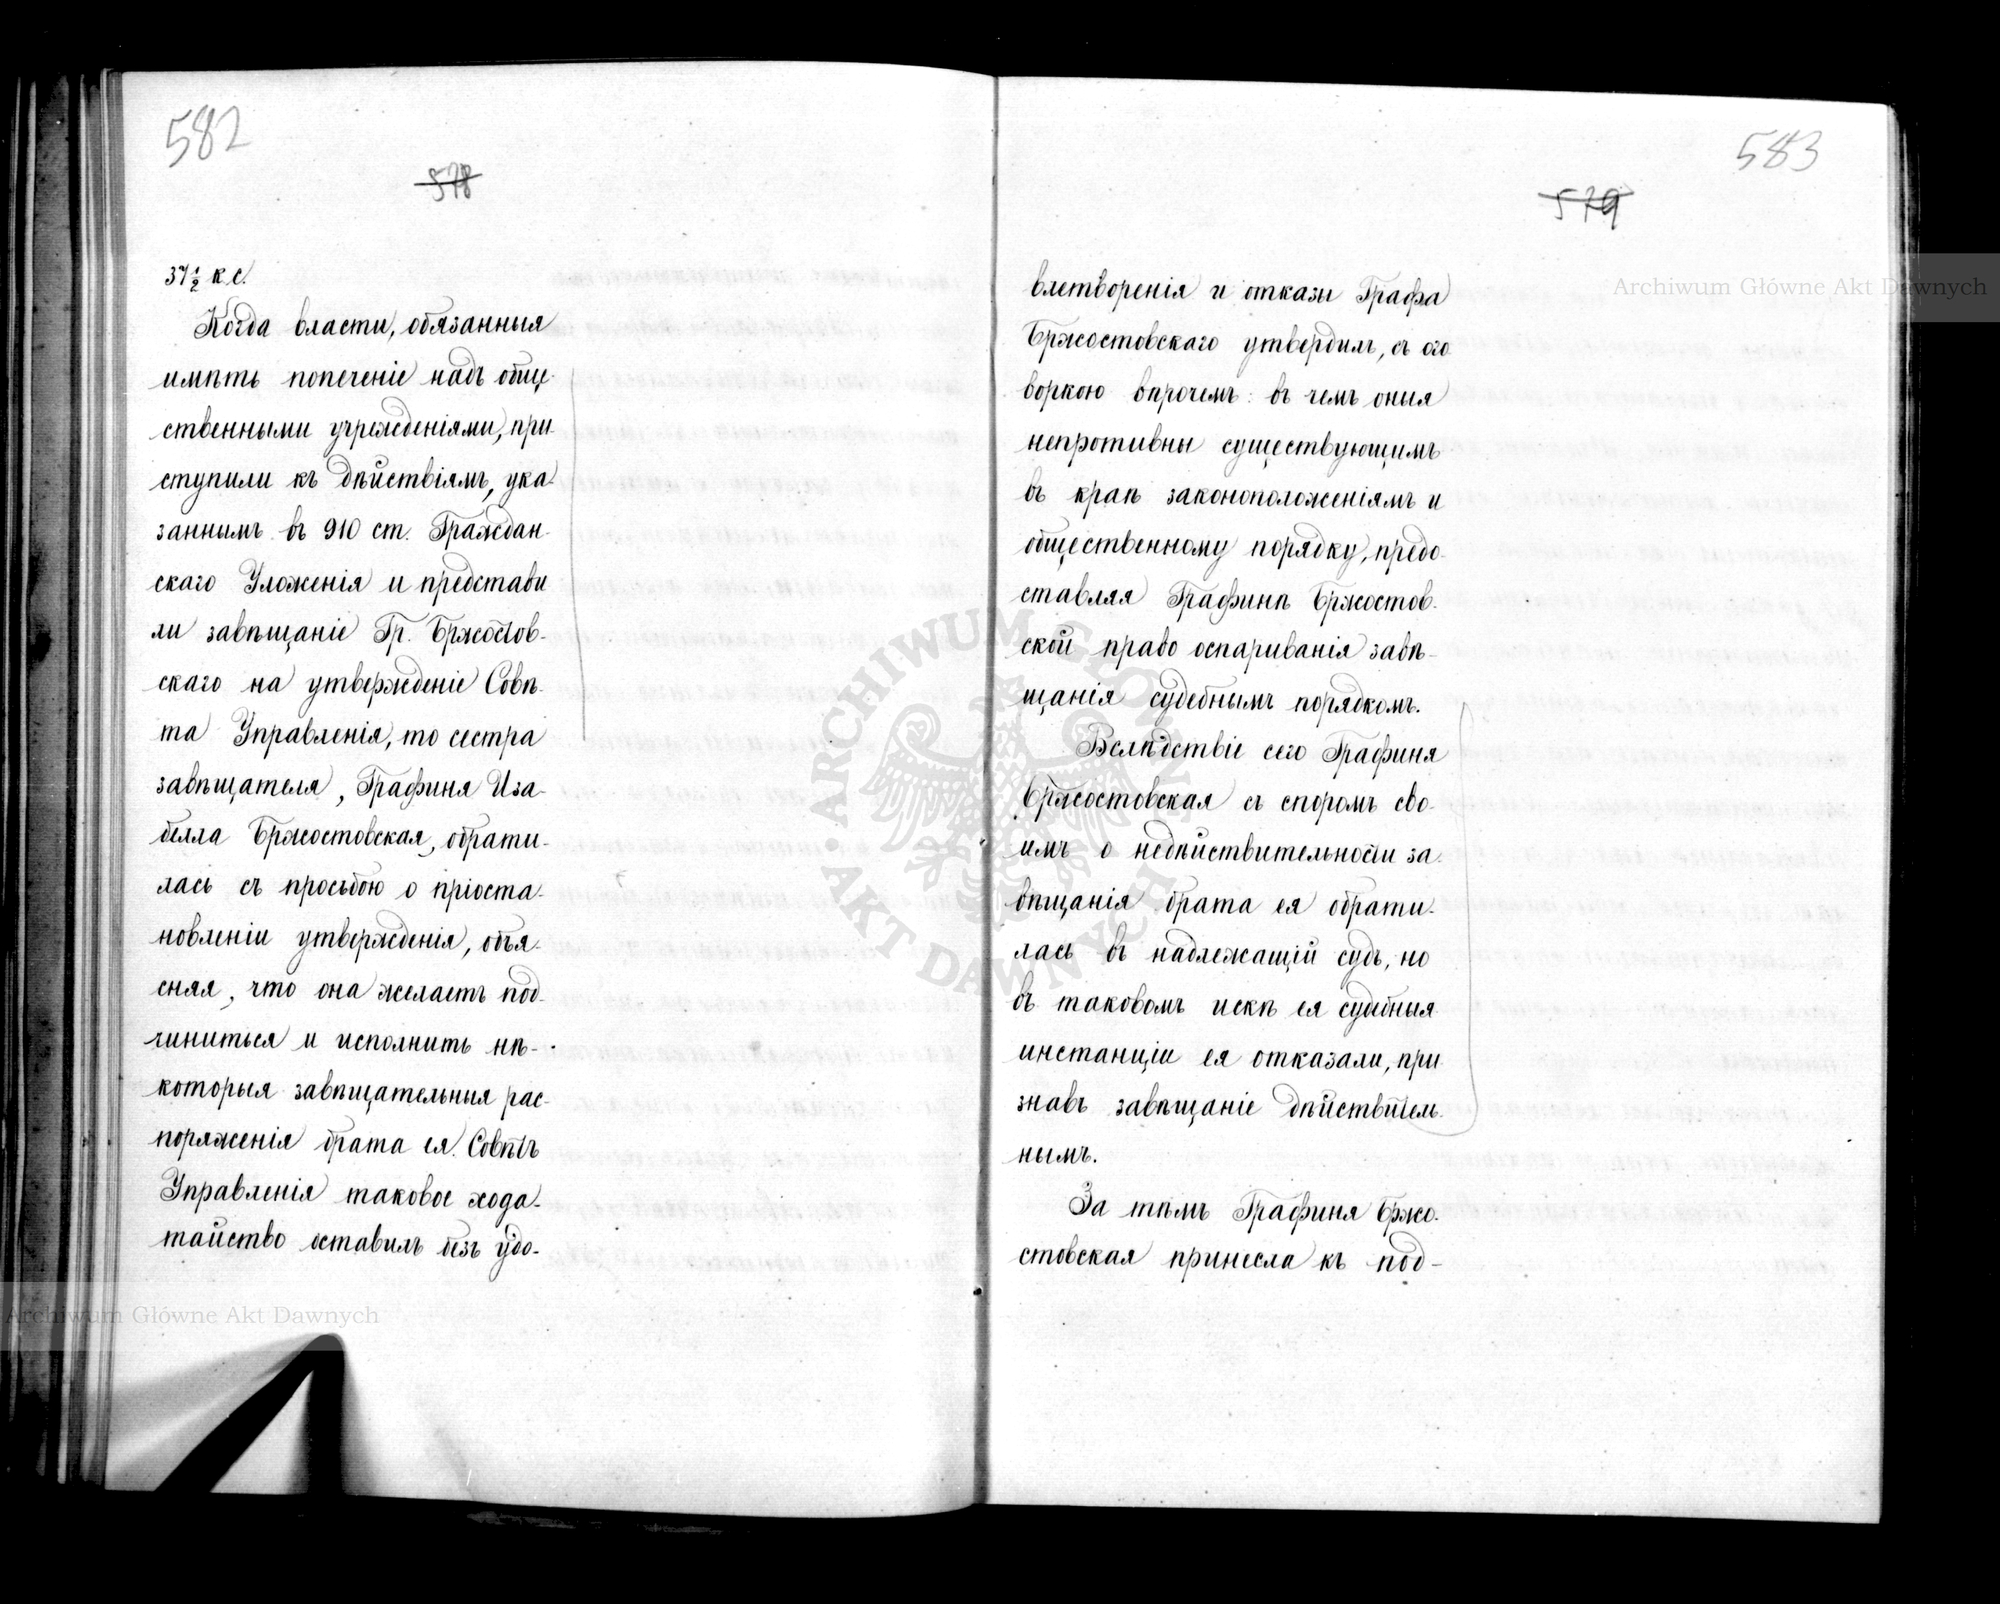 582
578
37½ к. с.
Когда власти, обязанныя
имѣть попеченіе надъ обще-
ственными учрежденіями, при-
ступили къ дѣйствіямъ, ука-
заннымъ въ 910 ст. Граждан-
скаго Уложенія и представи
ли завѣщаніе Гр. Бржостов-
скаго на утвержденіе Совѣ-
та Управленія, то сестра
завѣщателя, Графиня Иза-
белла Бржостовская, обрати-
лась съ просьбою о пріоста-
новленіи утвержденія, объя-
сняя, что она желаетъ под-
чиниться и исполнить нѣ-
которыя завѣщательныя рас-
поряженія брата ея. Совѣтъ
Управленія таковое хода-
тайство оставилъ безъ удо-
583
579
влетворенія и отказы Графа
Бржостовскаго утвердилъ, съ ого
воркою впрочемъ: въ чемъ оныя
непротивны существующимъ
въ краѣ законоположеніямъ и
общественному порядку, предо-
ставляя Графинѣ Бржостов-
ской право оспариванія завѣ-
щанія судебнымъ порядкомъ.
Вслѣдствіе сего Графиня
Бржостовская съ споромъ сво-
имъ о недѣйствительности за-
вѣщанія брата ея обрати-
лась въ надлежащій судъ, но
въ таковомъ искѣ ея судебныя
инстанціи ея отказали, при
знавъ завѣщаніе дѣйствитель
нымъ.
За тѣмъ Графиня Бржо-
стовская принесла къ под-
Archiwum Główne Akt Dawnych
ARCHIWUM GŁÓWNE AKT DAWNYCH
Archiwum Główne Akt Dawnych